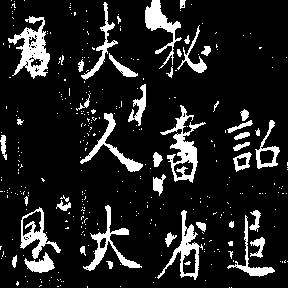 詔追
秘書省
夫人太
君恩